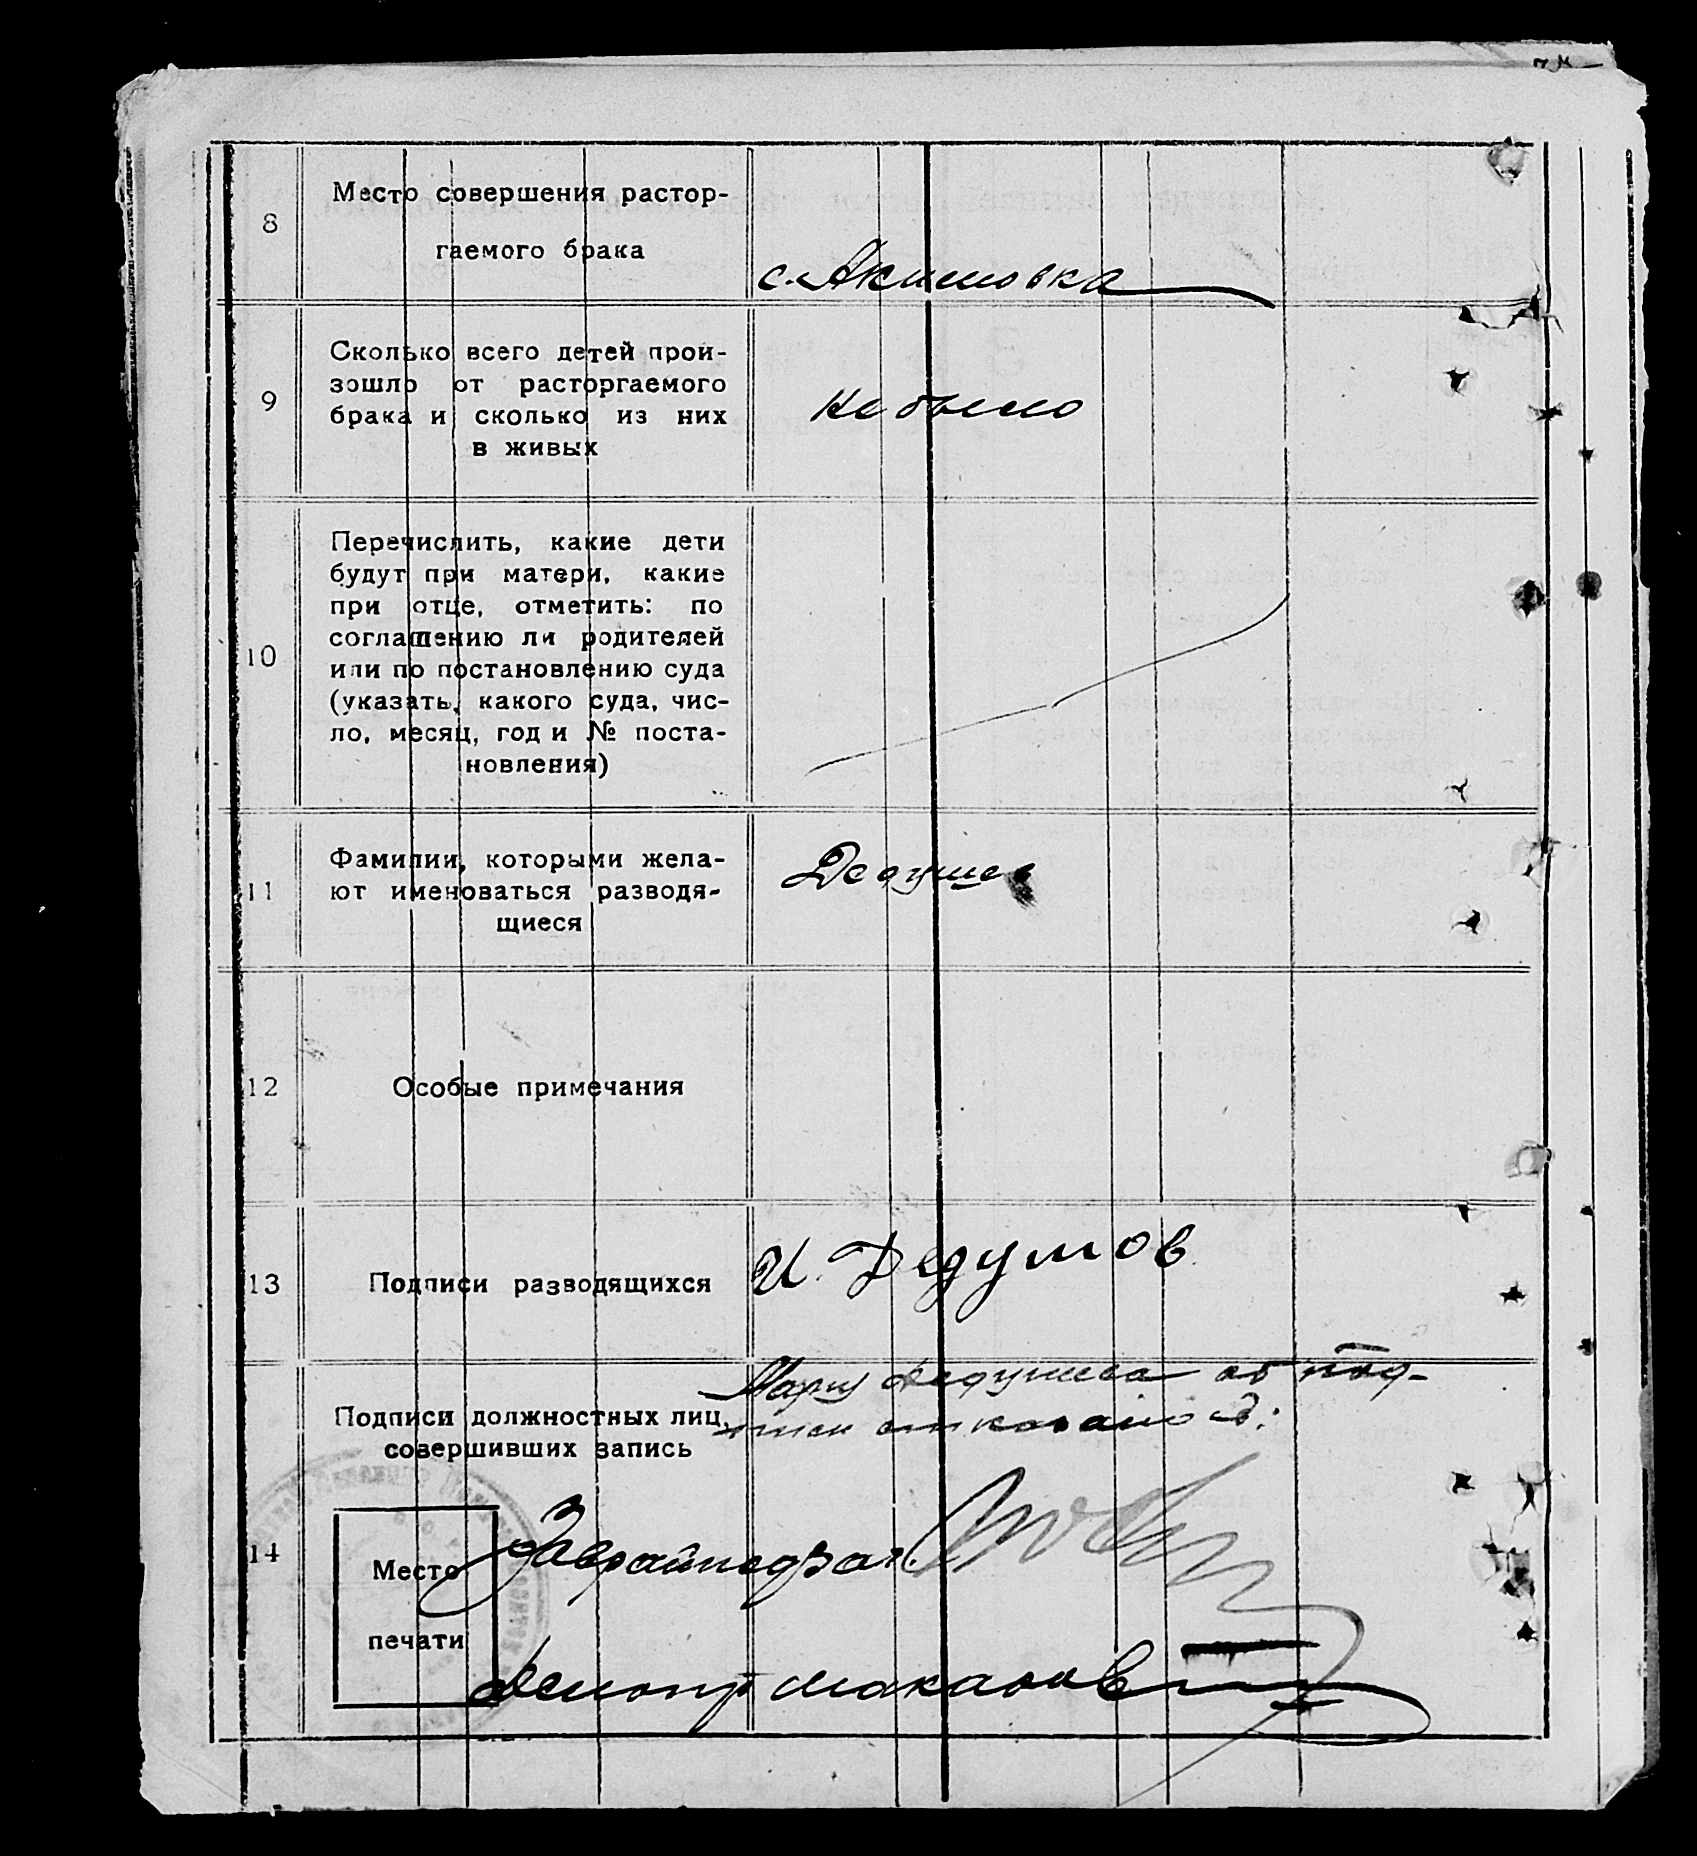 8
Место совершения растор-
гаемого брака
с. Акимовка
9
Сколько всего детей прои-
зошло от расторгаемого
брака и сколько из них
в живых
не было
10
Перечислить, какие дети
будут при матери, какие
при отце, отметить: по
соглашению ли родителей
или по постановлению суда
(указать, какого суда, чис-
ло, месяц, год и № поста-
новления)
11
Фамилии, которыми жела-
ют именоваться разводя-
щиеся
12
Особые примечания
13
Подписи разводящихся
И. Дедумов
об под-
14
Подписи должностных лиц,
совершивших запись
Место
печати